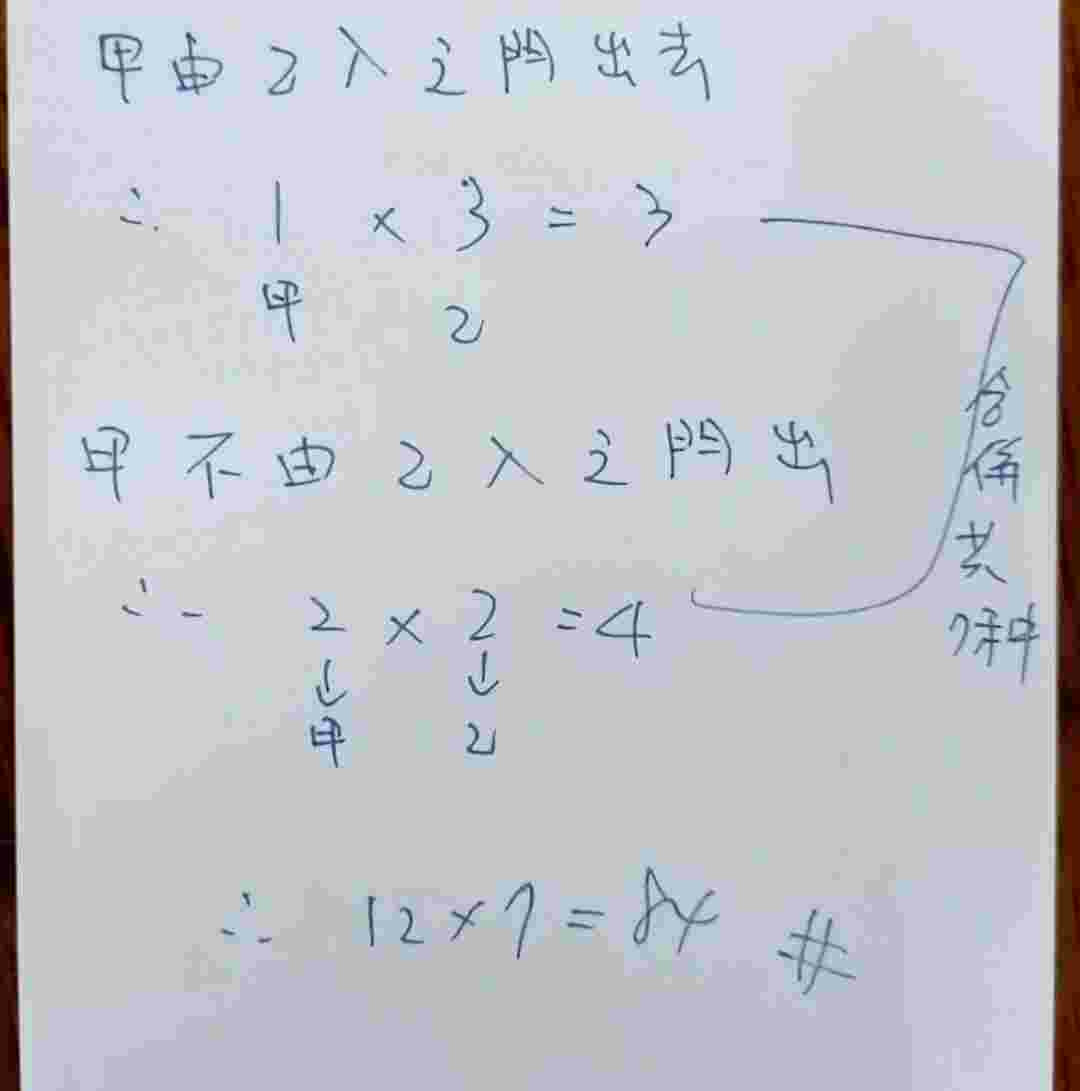 甲由乙入之門出去
∴ 1 × 3 = 3
甲 乙
甲不由乙入之門出
∴ 2 × 2 = 4
↓ ↓
甲 乙
合併共7種
∴ 12 × 7 = 84 #